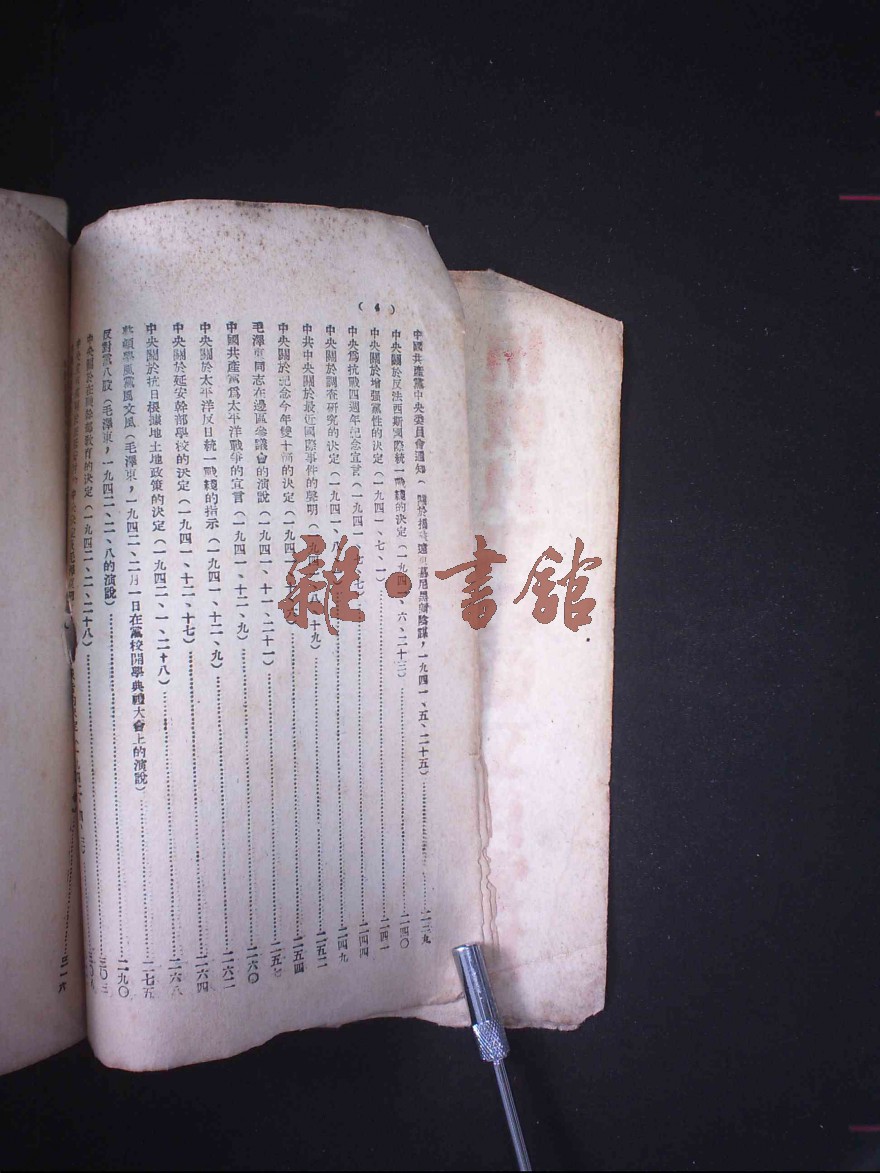 （4）
中國共產黨中央委員會通知（關於揭破遠東慕尼黑新陰謀，一九四一、五、二十五）……二三九
中央關於反法西斯國際統一戰綫的決定（一九四一、六、二十三）……二四〇
中央關於增强黨性的決定（一九四一、七、一）……二四一
中央爲抗戰四週年紀念宣言（一九四一、七、七）……二四四
中央關於調查研究的決定（一九四一、八、）……二四九
中共中央關於最近國際事件的聲明（一九四一、八、十九）……二五二
中央關於紀念今年雙十節的決定（一九四一、）……二五四
毛澤東同志在邊區參議會的演說（一九四一、十一、二十一）……二五七
中國共產黨爲太平洋戰爭的宣言（一九四一、十二、九）……二六〇
中央關於太平洋反日統一戰綫的指示（一九四一、十二、九）……二六二
中央關於延安幹部學校的決定（一九四一、十二、十七）……二六四
中央關於抗日根據地土地政策的決定（一九四二、一、二十八）……二六八
整頓學風黨風文風（毛澤東，一九四二、二月一日在黨校開學典禮大會上的演說）……二七五
反對黨八股（毛澤東，一九四二、二、八的演說）……二九〇
中央關於在職幹部教育的決定（一九四二、二、二十八）……三〇
三一六
雜·書館